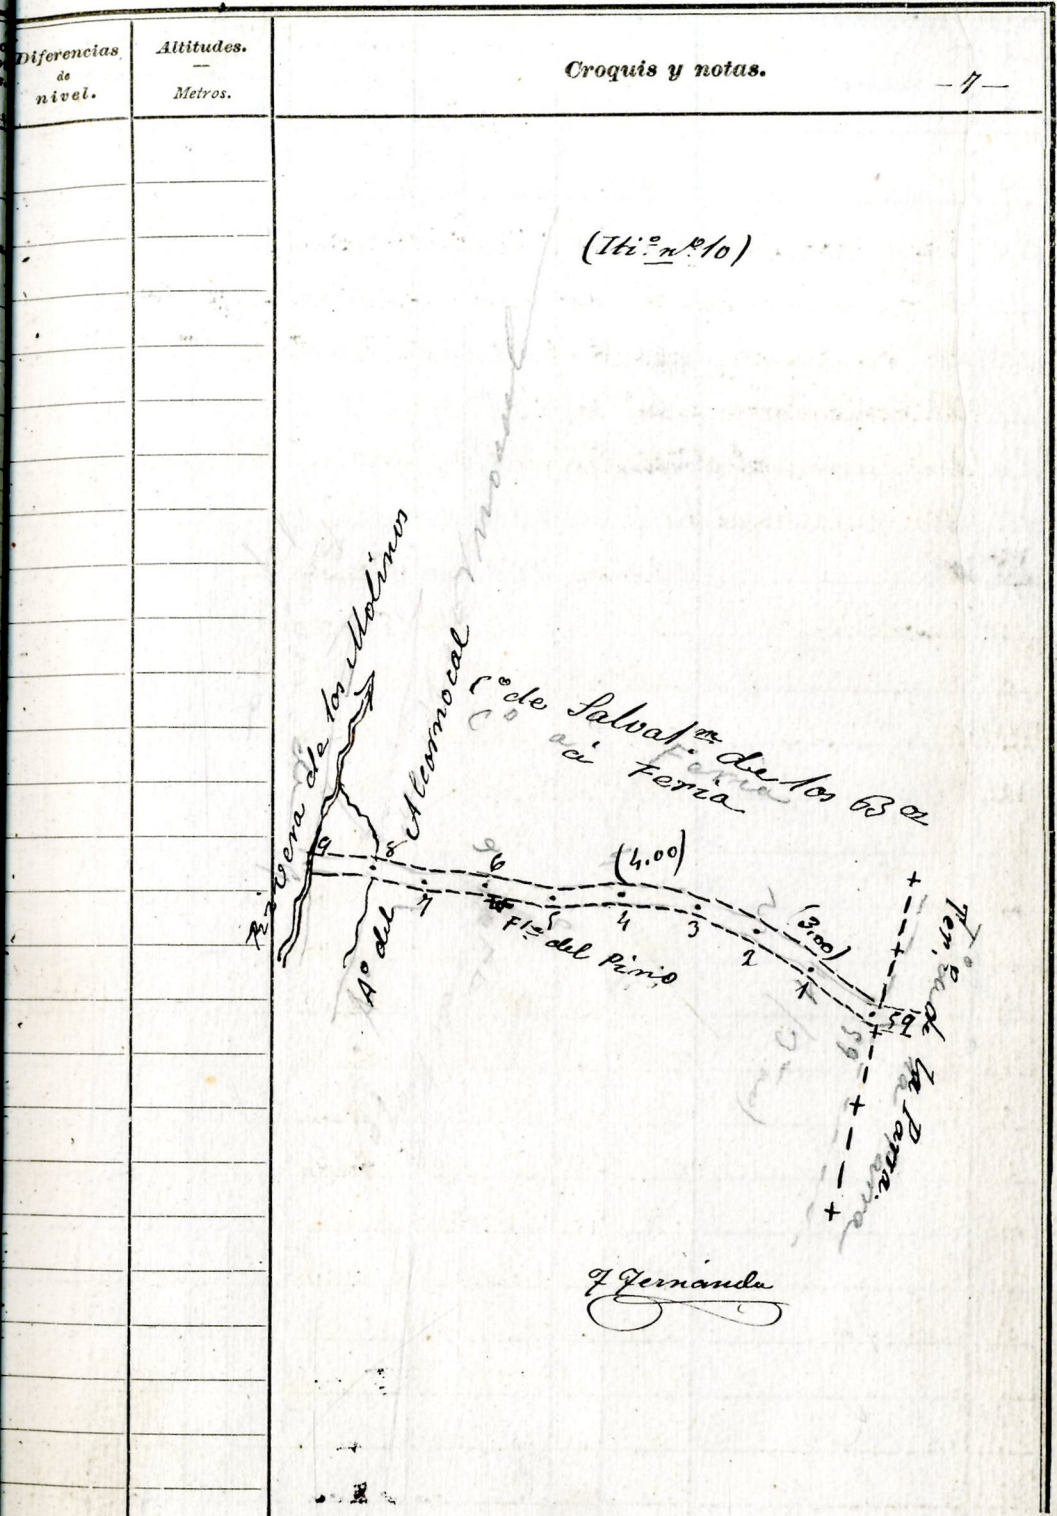 Diferencias
de
nivel.
Altitudes.
Metros.
Croquis y notas.
- 7 -
(Iti.º nº 10)
Rivera de los Molinos
Aº del Alcornocal
Cº de Salvat.rr de los B.os
á Feria
(4.00)
(3.00)
9
8
7
6
5
4
3
2
1
59
Fte del Pino
Term.º de La Parra
F Fernández